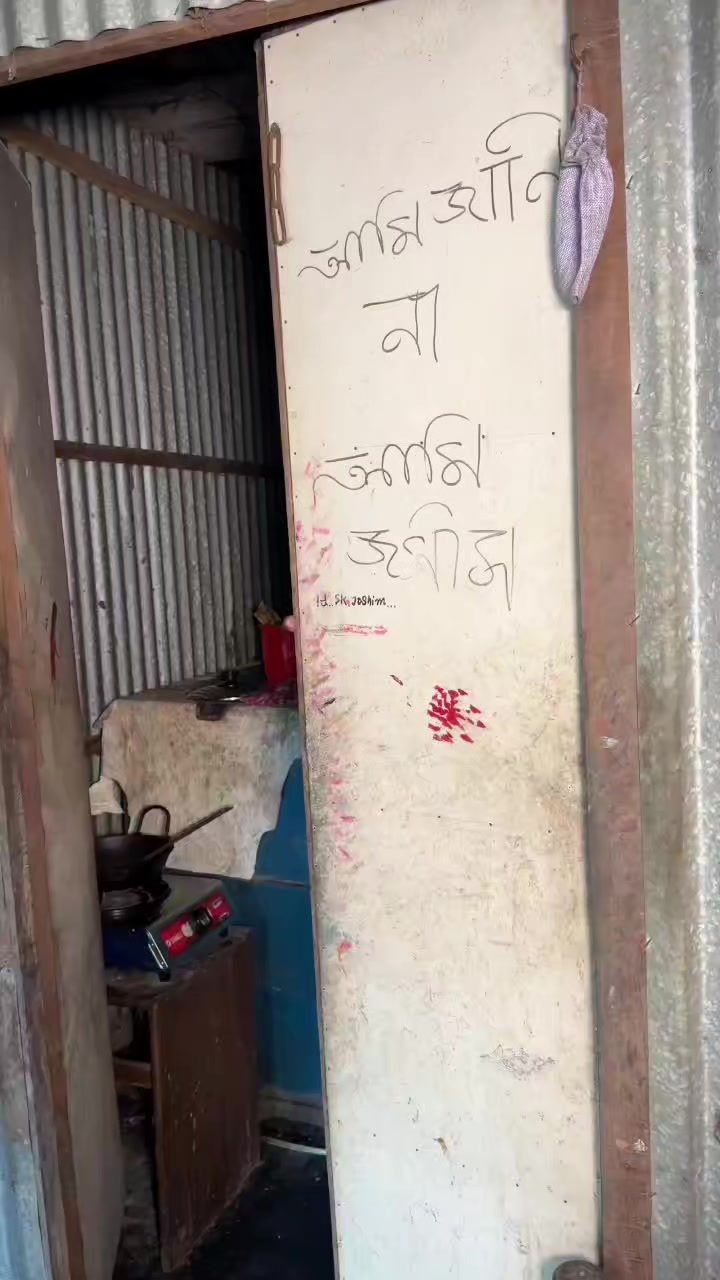 আমি জানি
না
আমি
জসীম
Id..SK Joshim...